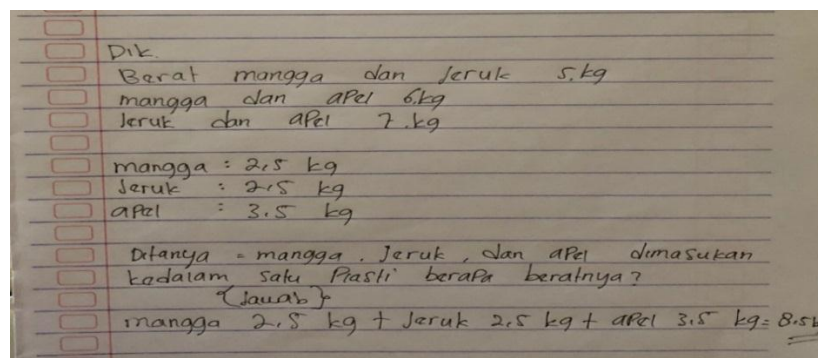 Dik.
Berat mangga dan Jeruk 5.kg
mangga dan apel 6.kg
Jeruk dan apel 7.kg
mangga : 2,5 kg
Jeruk : 2,5 kg
apel : 3.5 kg
Ditanya = mangga, Jeruk, dan apel dimasukan
kedalam satu Plastik berapa beratnya?
{Jawab}
mangga 2,5 kg + Jeruk 2,5 kg + apel 3.5 kg = 8.5k